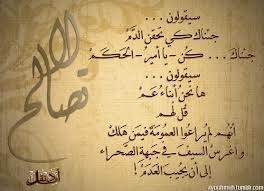 لا تصالح
سيقولون ...
جئناك كي تحقن الدم
جئناك ... كن - يا أمير - الحكم
سيقولون ...
ها نحن أبناء عم
قل لهم
أنهم لم يراعوا العمومة فيمن هلك
واغرس السيف في جبهة الصحراء
إلى أن يجيب العدم !
أمل دنقل
ayoubmuh.tumblr.com